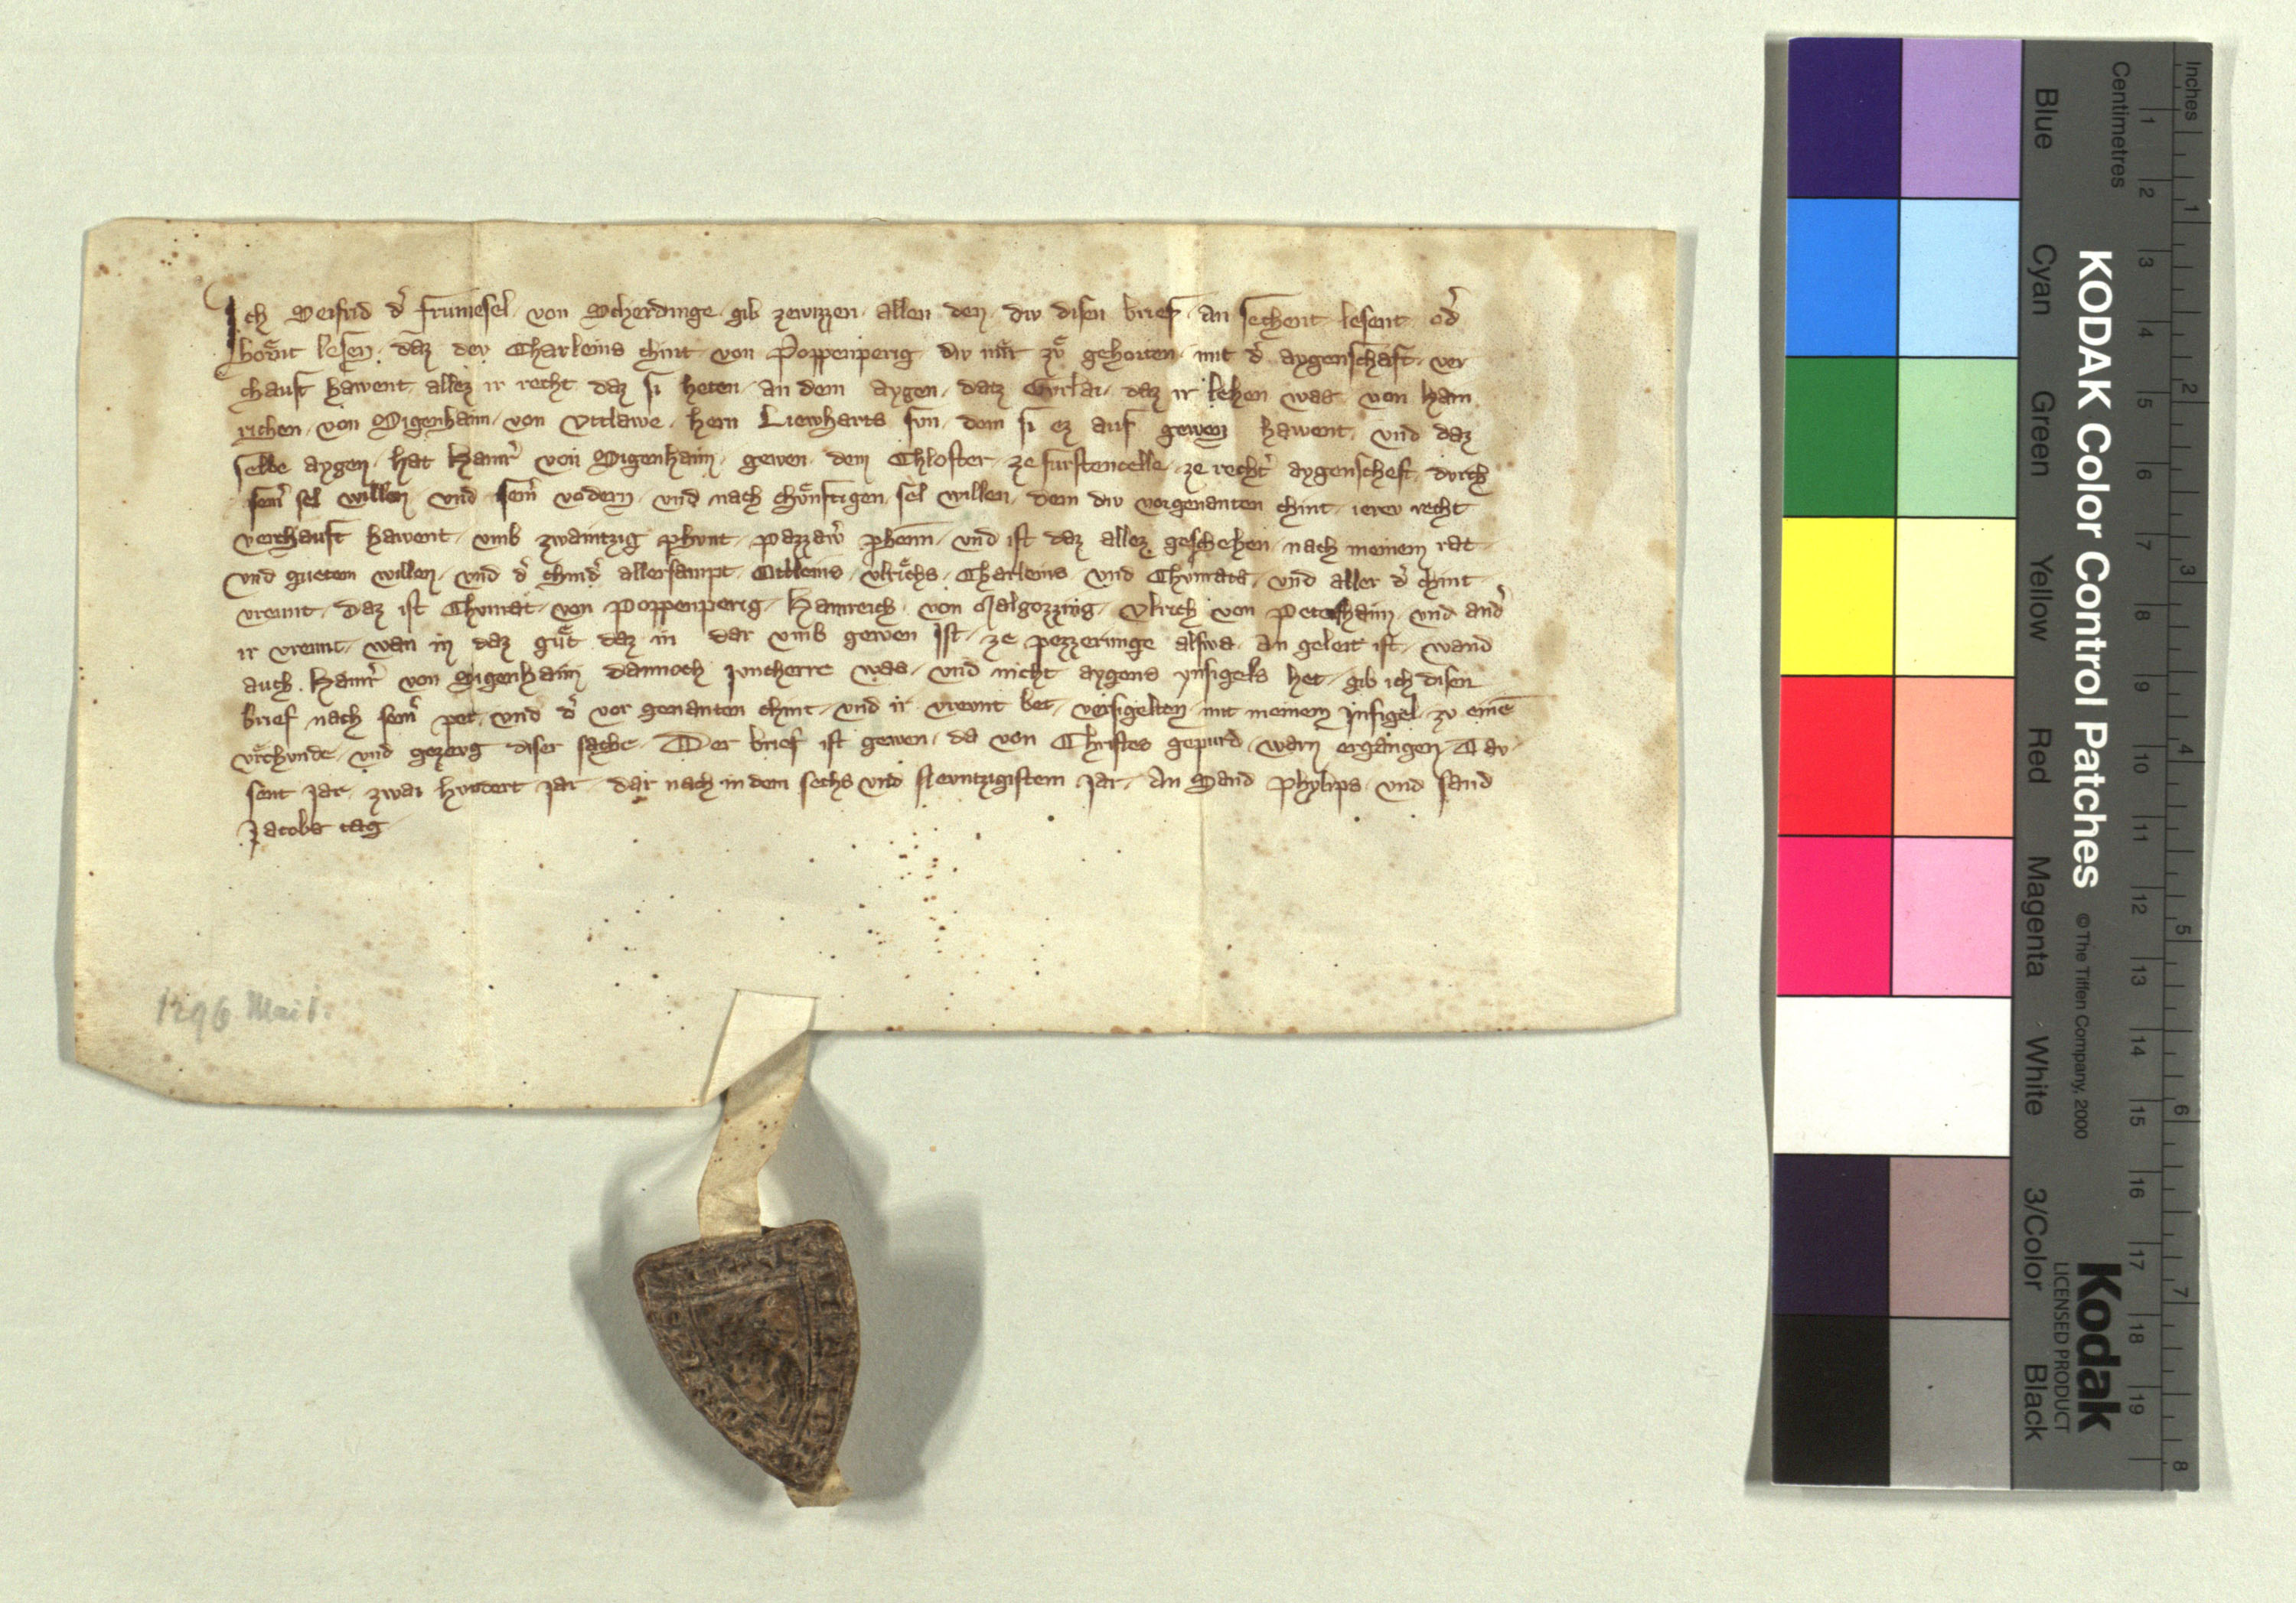 Ich Seifrid d᾽ frumesel von Scherdinge gib zewizzen allen den div disen brief an sechent lesent od᾽
horͤnt lesen daz dev Charleins chint von Poppenperig div mir zvͤ gehorten mit d᾽ aygenschaft ver
chauft hawent allez ir recht daz si heten an dem aygen datz daz ir lehen was von Hain
richen von Sigenhaim von Vttlawe hern Liewharts svn dem si ez auf gewen hawent vnd daz
selbe aygen hat Hainr᾽ von Sigenhaim gewen dem Chloster ze furstencelle ze recht᾽ aygenscheft dvrch
sein᾽ sel willen vnd sein᾽ vodern vnd nach chvͤnftigen sel willen dem div vorgenanten chint irev recht
verchauft hawent vmb zwaintzig phvnt pazzaw᾽ phenn̄ vnd ist daz allez geschehen nach meinem rat
vnd guetem willen vnd d᾽ chind᾽ allersampt Ottleins vlrichs Charleins vnd Chvnrats vnd aller d᾽ chint
vreunt daz ist Chvnrat von Poppenperig Hainreich von Malgozzing Vlrich von Petershaim vnd and᾽
ir vreunt wan in daz gvͤt daz in dar vmb gewen ist ze pezzerunge alswa an geleit ist wand
auch Hainr᾽ von Sigenhaim dannoch Juncherre was vnd nicht aygens ynsigels het gib ich disen
brief nach sein᾽ pet vnd d᾽ vor genanten chint vnd ir vreunt bet versigelten mit meinem Insigel zv einē
vrͤchvnde vnd gezevg diser sache Der brief ist gewen da von Christes gepurd warn ergangen Tav
sent jar zwai hvndert jar dar nach in dem sechs vnd Nevntzigistem jar An Sand Phylips vnd sand
Jacobs tag
1296 Mai 1.
KODAK Color Control Patches
© The Tiffen Company, 2000
Kodak
LICENSED PRODUCT
Blue Cyan Green Yellow Red Magenta White 3/Color Black
Inches 1 2 3 4 5 6 7 8
Centimetres 1 2 3 4 5 6 7 8 9 10 11 12 13 14 15 16 17 18 19